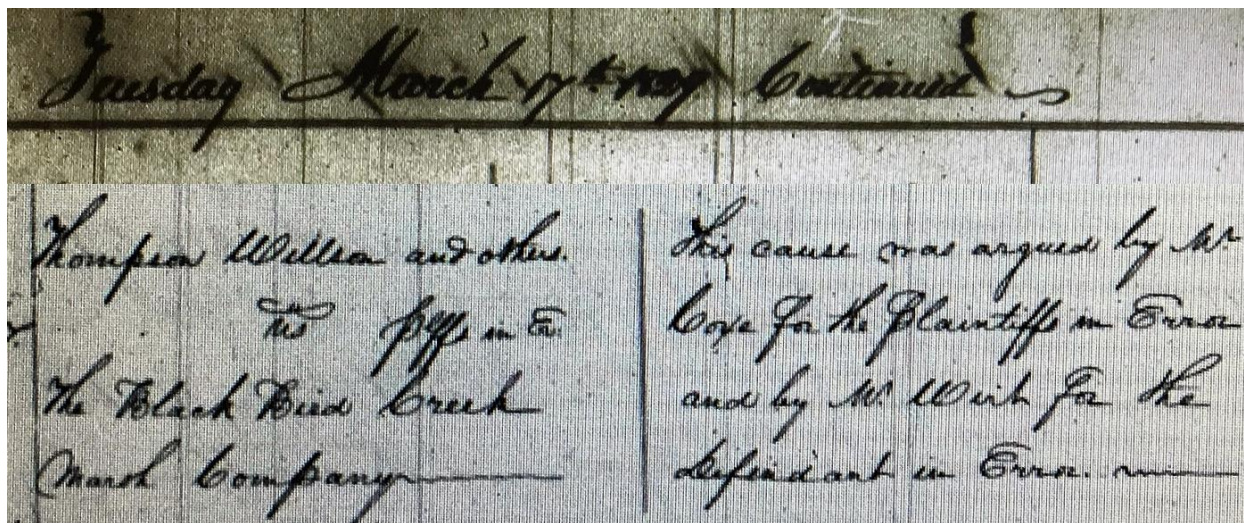 Tuesday March 17th 1829 Continued
Thompson Willson and others.
vs pffs in Er.
The Black Bird Creek
Marsh Company
This cause was argued by Mr
Coxe for the Plaintiffs in Error
and by Mr. Wirt for the
defendant in Error.